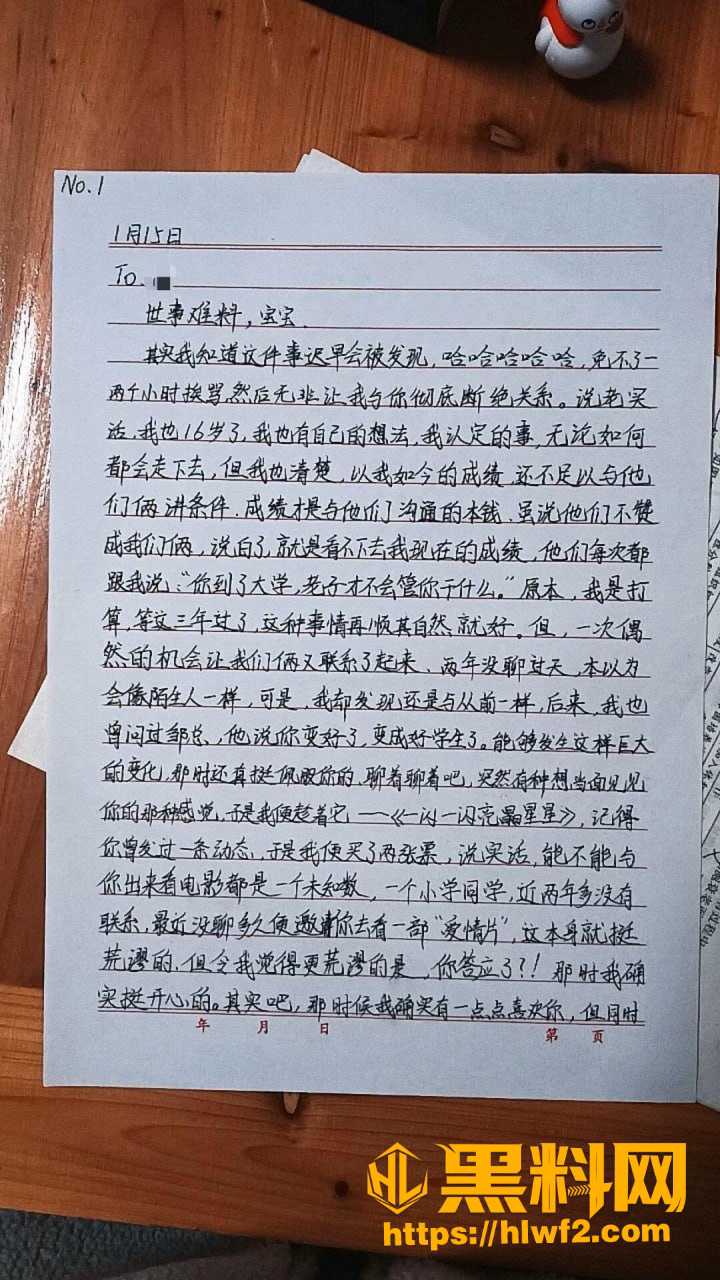 No.1
1月15日
To.
世事难料，宝宝.
其实我知道这件事迟早会被发现，哈哈哈哈哈，免不了一
两个小时挨骂，然后无非让我与你彻底断绝关系。说老实
话，我也16岁了，我也有自己的想法，我认定的事，无论如何
都会走下去，但我也清楚，以我如今的成绩，还不足以与他
们俩讲条件，成绩才是与他们沟通的本钱，虽说他们不赞
成我们俩，说白了，就是看不下去我现在的成绩，他们每次都
跟我说：“你到了大学，老子才不会管你干什么。”原本，我是打
算，等这三年过了，这种事情再顺其自然就好。但，一次偶
然的机会让我们俩又联系了起来、两年没聊过天，本以为
会像陌生人一样，可是，我却发现还是与从前一样，后来，我也
曾问过邹总，他说你变好了，变成好学生了。能够发生这样巨大
的变化，那时还真挺佩服你的，聊着聊着吧，突然有种想当面见见
你的那种感觉，于是我便趁着它——《一闪一闪亮晶星星》，记得
你曾发过一条动态，于是我便买了两张票，说实话，能不能与
你出来看电影都是一个未知数，一个小学同学，近两年多没有
联系，最近没聊多久便邀请你去看一部“爱情片”，这本身就挺
荒谬的，但令我觉得更荒谬的是，你答应了？！那时我确
实挺开心的。其实吧，那时候我确实有一点点喜欢你，但同时
年 月 日 第 页
HL 黑料网
https://hlwf2.com